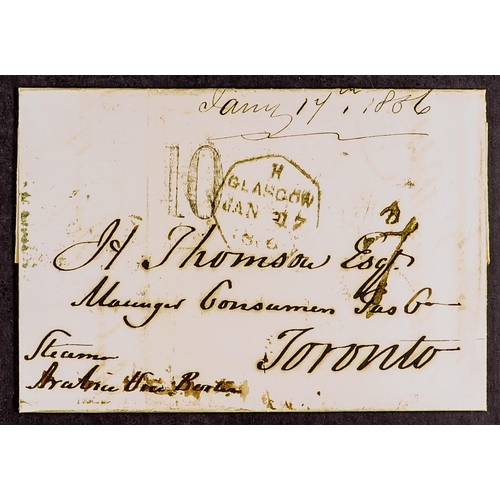 Jany 17th, 1866
10
H
GLASGOW
JAN 17
186
JH Thomson Esqr.
Manager Consumers Gas Co
Toronto
Steamer
Arabia